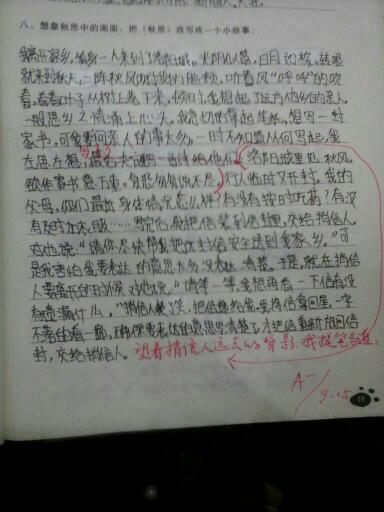 八、想象秋思中的画面，把《秋思》改写成一个小故事。
我离开家乡，独身一人来到了洛阳城。光阴似箭，日月如梭，转眼
就来到秋天，一阵秋风吹我们脸颊，听着风“呼呼”的吹
着，看着叶子从树上落下来，顿时，我想起了远方他乡的亲人，
一股思乡之情涌上心头。我急切的拿起笔纸，想写一封
家书，可我要问亲人的事太多，一时不知道从何写起，我
左思右想，最后决定写一首诗给他们
洛阳城里见秋风，
欲作家书意万重。复恐匆匆说不尽，行人临时又开封。我的
父母，你们最近身体情况怎么样？有没有按时吃药？有没
有及时加衣服……写完后，我把信装到信封里，交给捎信人，
对他说：“请你尽快帮我把这封信安全送到我家乡。”可
是我害怕我要表达的意思太多没表达清楚。于是，就在捎信
人要离开的时候，对他说：“请等一等，我想再看一下信有没
有遗漏什么。”捎信人笑了笑，把信递给我，我将信看回屋，一字
不落的看一遍，确保要表达的意思写清楚了，才把信重新放回信
封，交给捎信人。望着捎信人远去的背影，我提笔写道：
A-
9.15
19